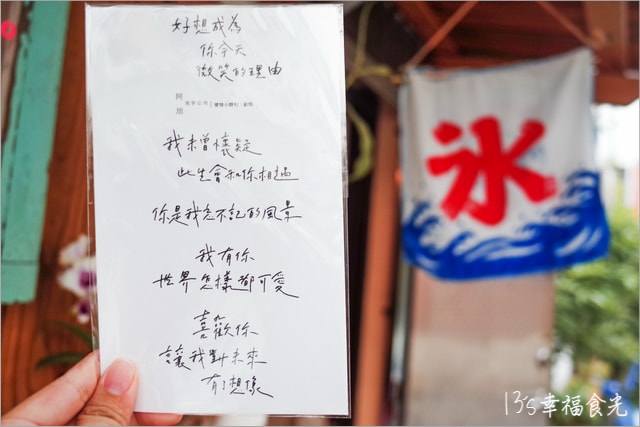 好想成為
你今天
微笑的理由
阿旭
寫字公司
我未曾懷疑
此生會和你相遇
你是我忘不記的風景
我有你
世界怎樣都可愛
喜歡你
讓我對未來
有了想像
氷
13's幸福食光